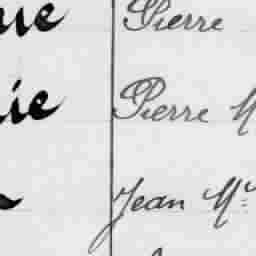 ue Pierre
ie Pierre M
Jean M.